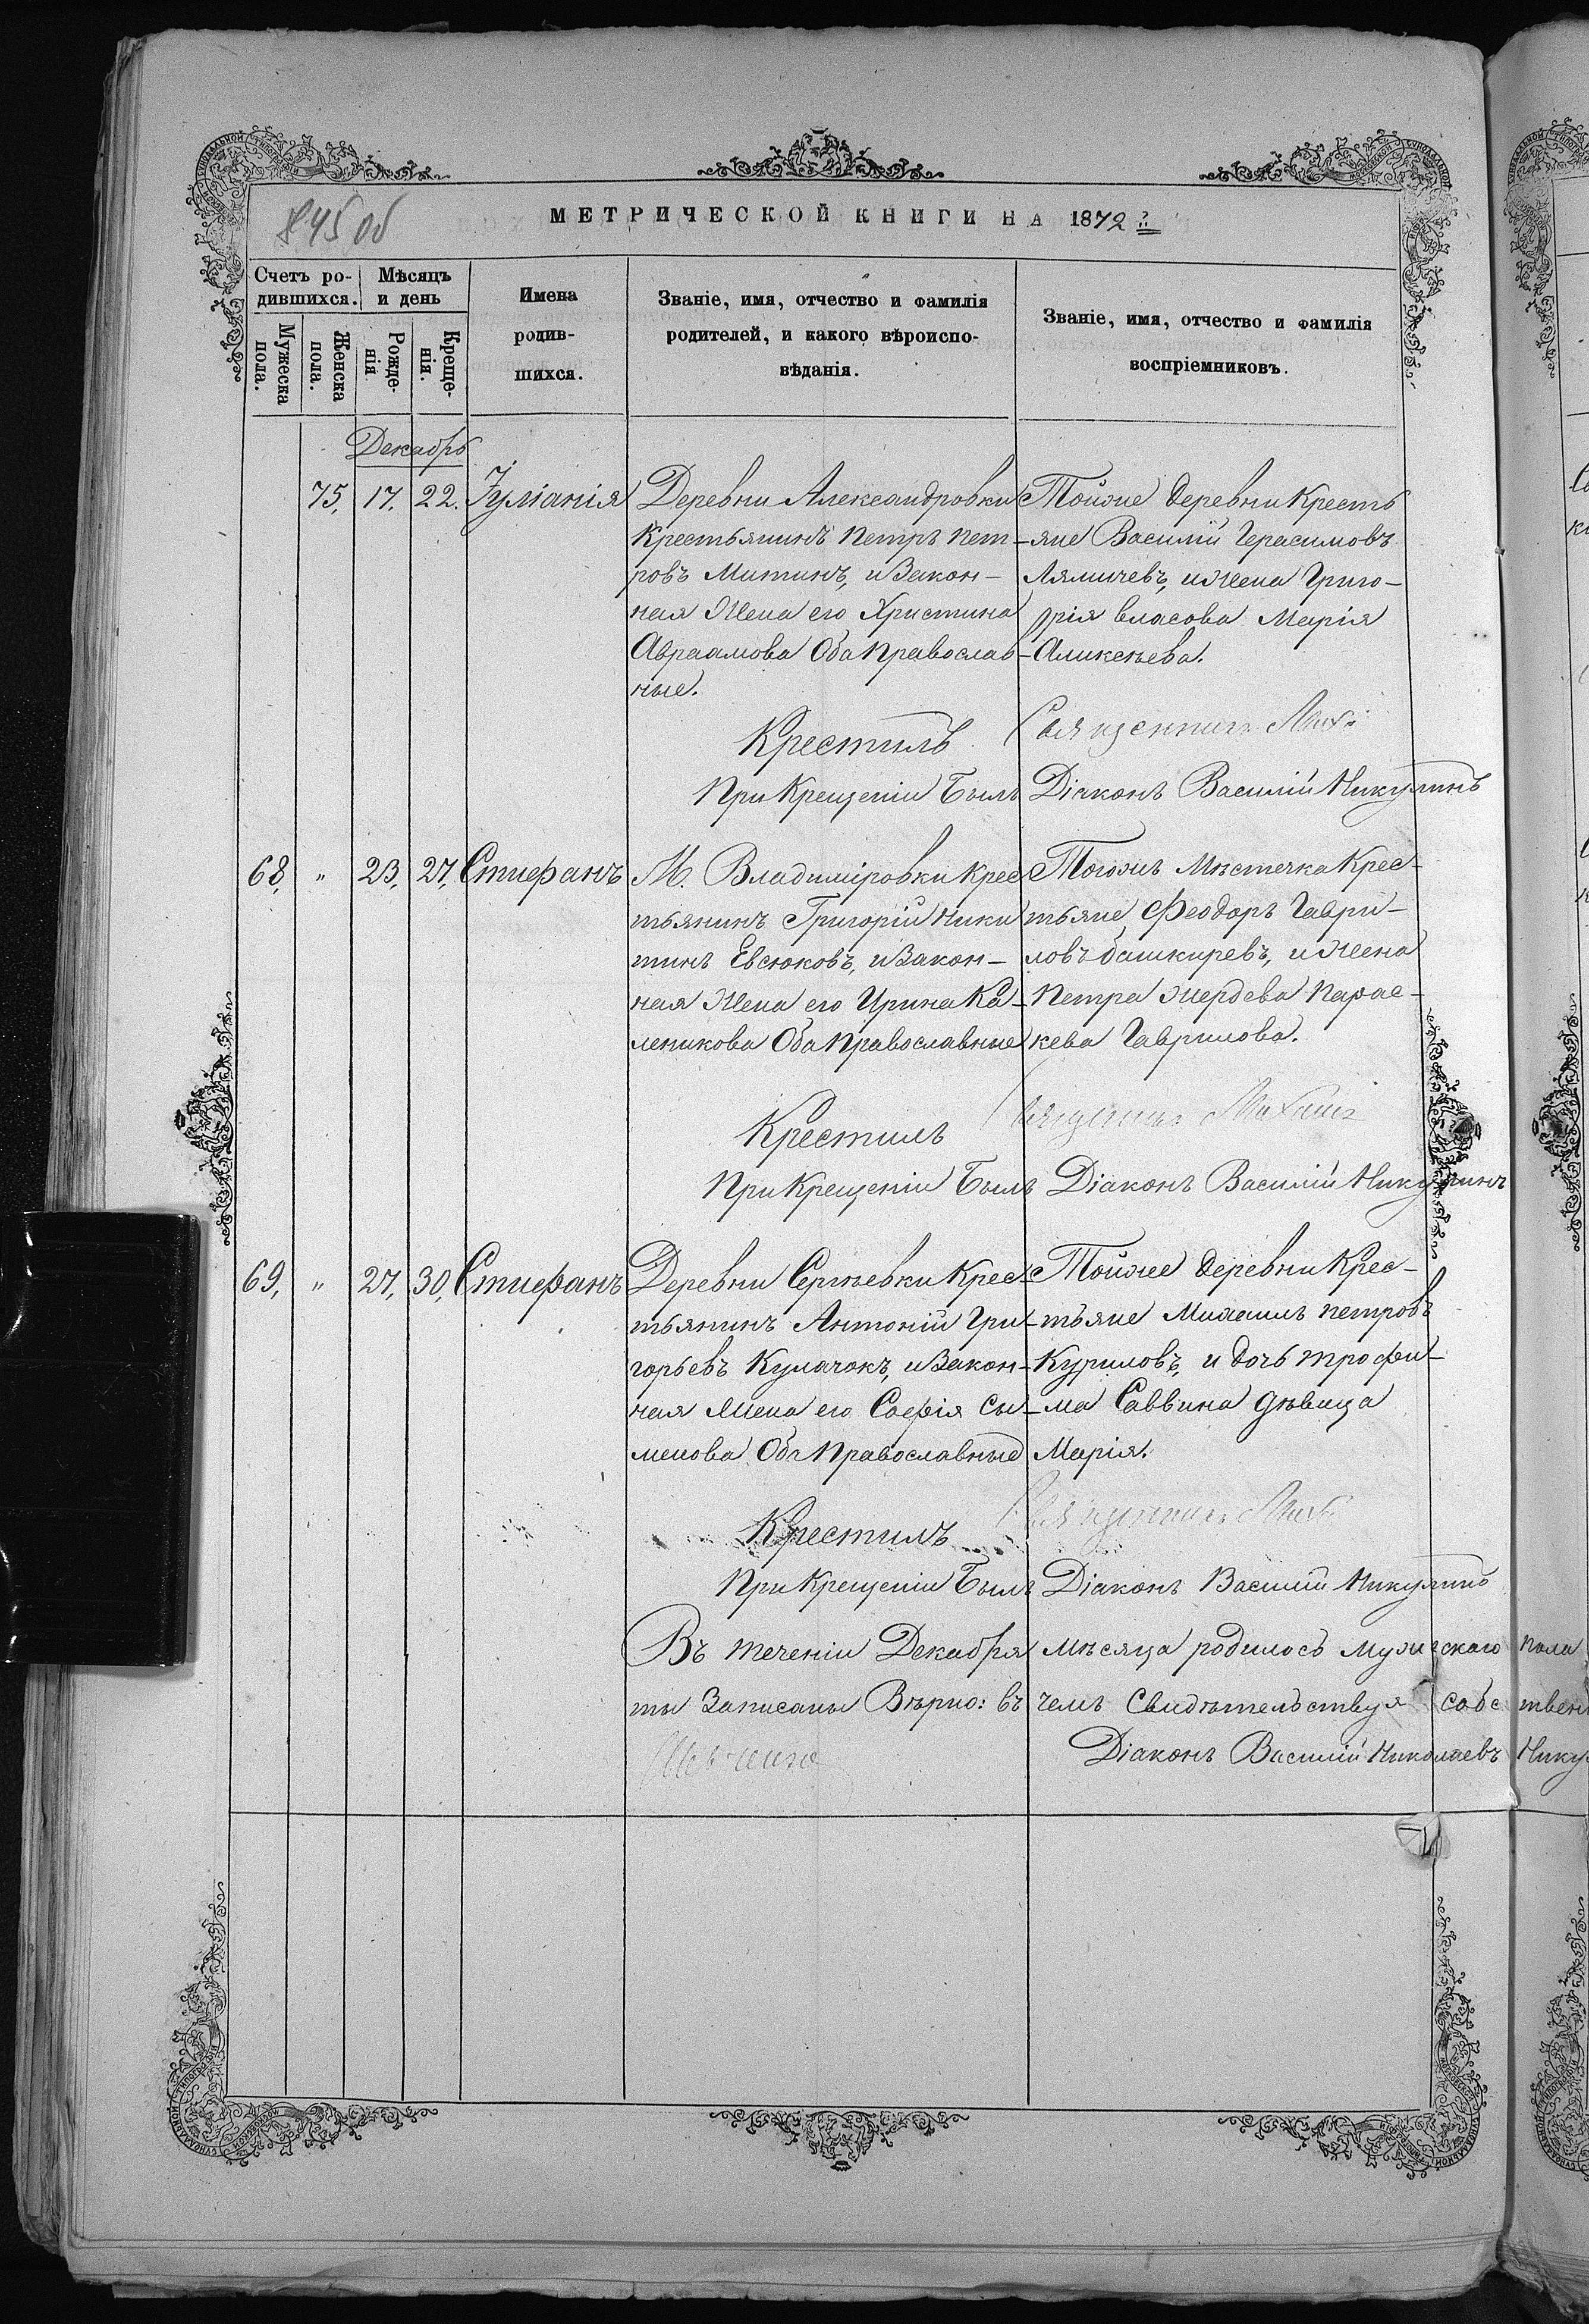 845 об
МЕТРИЧЕСКОЙ КНИГИ НА 1872 г.
Счетъ ро-
дившихся.
Мѣсяцъ
и день
Мужеска
пола.
Женска
пола.
Рожде-
нія
Креще-
нія.
Имена
родив-
шихся.
Званіе, имя, отчество и фамилія
родителей, и какого вѣроиспо-
вѣданія.
Званіе, имя, отчество и фамилія
воспріемниковъ.
Декабрь
75, 17, 22. Іуліанія
Деревни Александровки
Крестьянинъ Петръ Пет-
ровъ Митинъ, и Закон-
ная Жена его Христина
Авраамова Оба Православ-
ные.
Тойже деревни Кресть
яне Василій Герасимовъ
Лямичевъ, и Жена Григо-
рія Власова Марія
Аликсѣева.
Крестилъ Священникъ
При Крещеніи Былъ Діаконъ Василій Никулинъ
68, " 23, 27, Стиефанъ
М. Владиміровки Крес
тьянинъ Григорій Ники
тинъ Евсюковъ, и Закон-
ная Жена его Ирина Ка-
леникова Оба Православные
Тогожъ Мѣстечка Крес-
тьяне Феодоръ Гаври-
ловъ башкиревъ, и Жена
Петра жердева Парас-
кева Гаврилова.
Крестилъ Священникъ Михаилъ
При Крещеніи Былъ Діаконъ Василій Никулинъ
69, " 27, 30, Стиефанъ
Деревни Сергѣевки Крес-
тьянинъ Антоній Гри-
горьевъ Кулачокъ, и Закон-
ная Жена его Софія Си-
менова Оба Православные
Тойже деревни Крес-
тьяне Михаилъ Петровъ
Куриловъ, и дочь трофи-
ма Саввина дѣвица
Марія.
Крестилъ Священникъ
При Крещеніи Былъ Діаконъ Василій Никулинъ
Въ теченіи Декабря мѣсяца родилось мужескаго пола
ты Записаны Вѣрно: въ чемъ Свидѣтельствуя собствен
Діаконъ Василій Николаевъ Нику